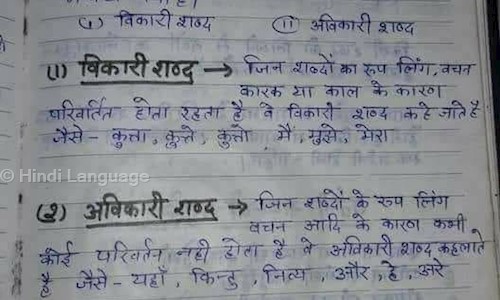 (i) विकारी शब्द (ii) अविकारी शब्द
(1) विकारी शब्द → जिन शब्दों का रूप लिंग, वचन
कारक या काल के कारण
परिवर्तित होता रहता है वे विकारी शब्द कहे जाते है
जैसे - कुत्ता, कुत्ते, कुत्तो मै, मुझे, मेरा
© Hindi Language
(२) अविकारी शब्द → जिन शब्दों के रूप लिंग
वचन आदि के कारण कभी
कोई परिवर्तन नही होता है वे अविकारी शब्द कहलाते
है जैसे - यहाँ, किन्तु, नित्या, और, हे, अरे